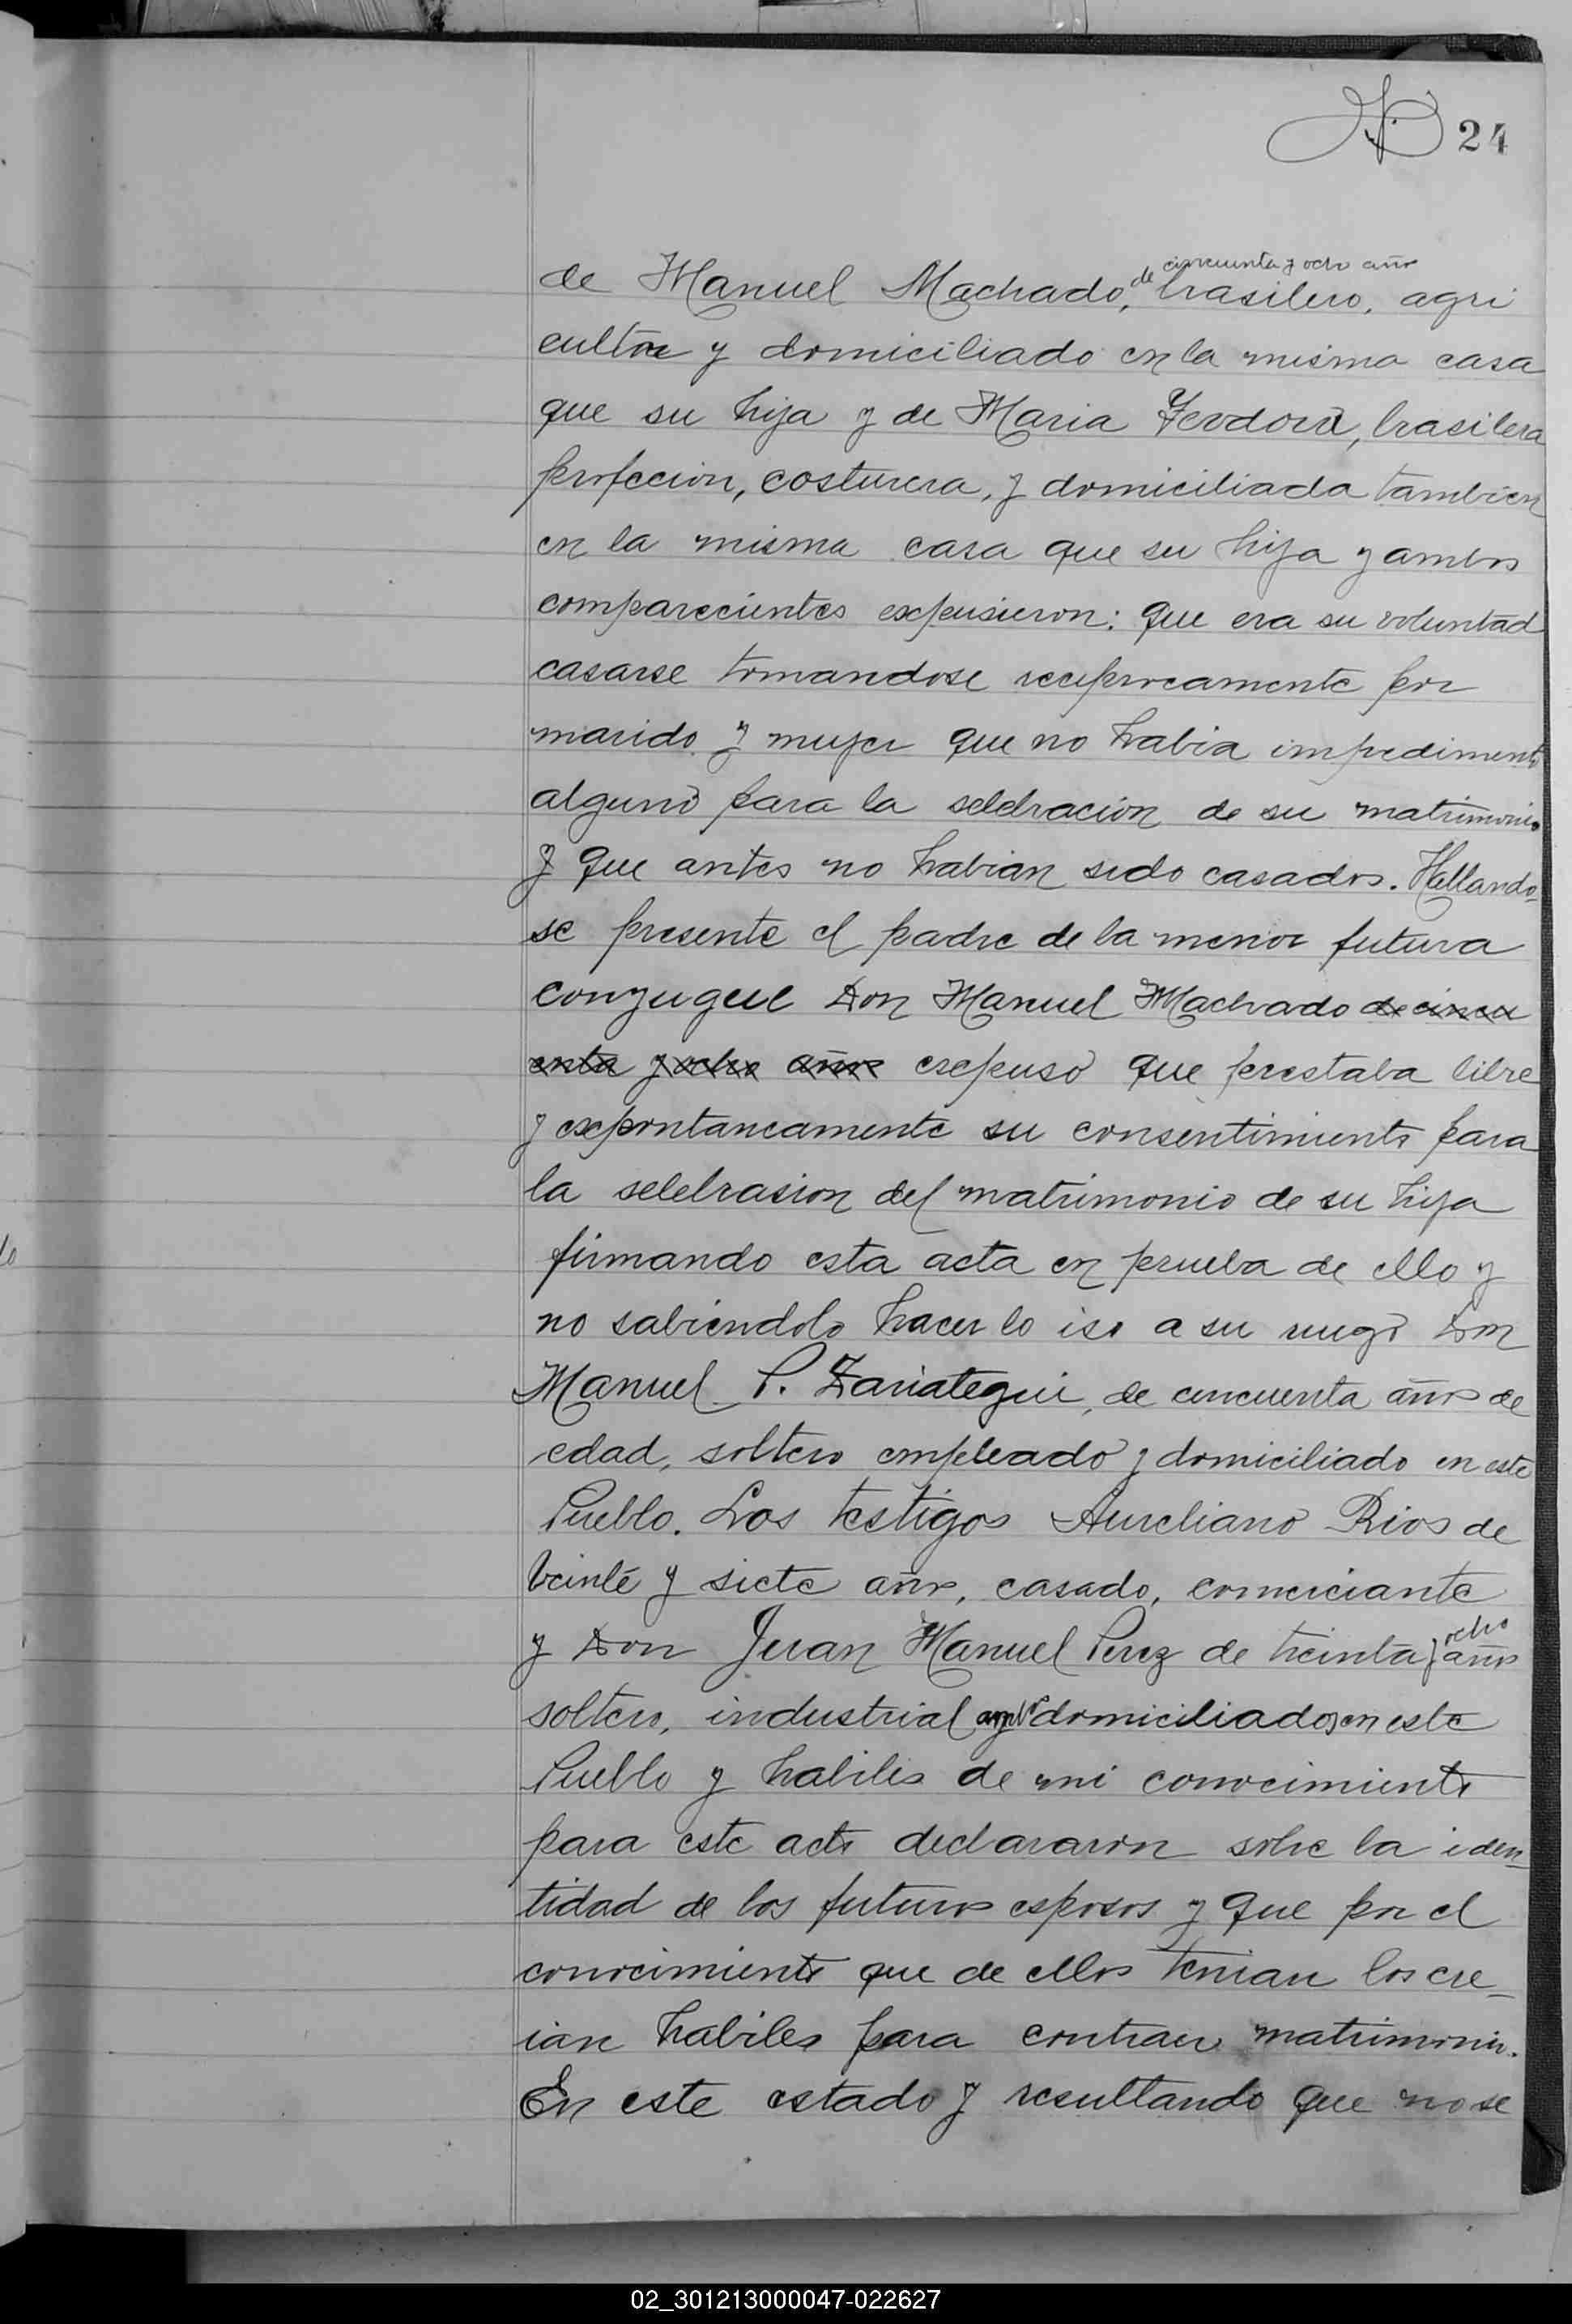 24
de Manuel Machado, de cincuenta y ocho años brasilero, agri
cultor y domiciliado en la misma casa
que su hija y de Maria Teodora, brasilera
profecion, costurera, y domiciliada tambien
en la misma casa que su hija y ambos
comparecientes expusieron: que era su voluntad
casarse tomandose reciprocamente por
marido y mujer que no habia impedimento
alguno para la selebracion de su matrimonio
y que antes no habian sido casados. Hallando-
se presente el padre de la menor futura
conyugue Don Manuel Machado de cincu
enta y ocho años expuso que prestaba libre
y expontaneamente su consentimiento para
la selebrasion del matrimonio de su hija
firmando esta acta en prueba de ello y
no sabiendolo hacer lo iso a su ruego Don
Manuel P. Zariategui, de cincuenta años de
edad, soltero empleado y domiciliado en este
Pueblo. Los testigos Aureliano Rios de
veinte y siete años, casado, comerciante
y Don Juan Manuel Perez de treinta y ocho años
soltero, industrial ambos domiciliados en este
Pueblo y habiles de mi conocimiento
para este acto declararon sobre la iden-
tidad de los futuros esposos y que por el
conocimiento que de ellos tenian los cre-
ian habiles para contraer matrimonio.
En este estado y resultando que no se
02_301213000047-022627